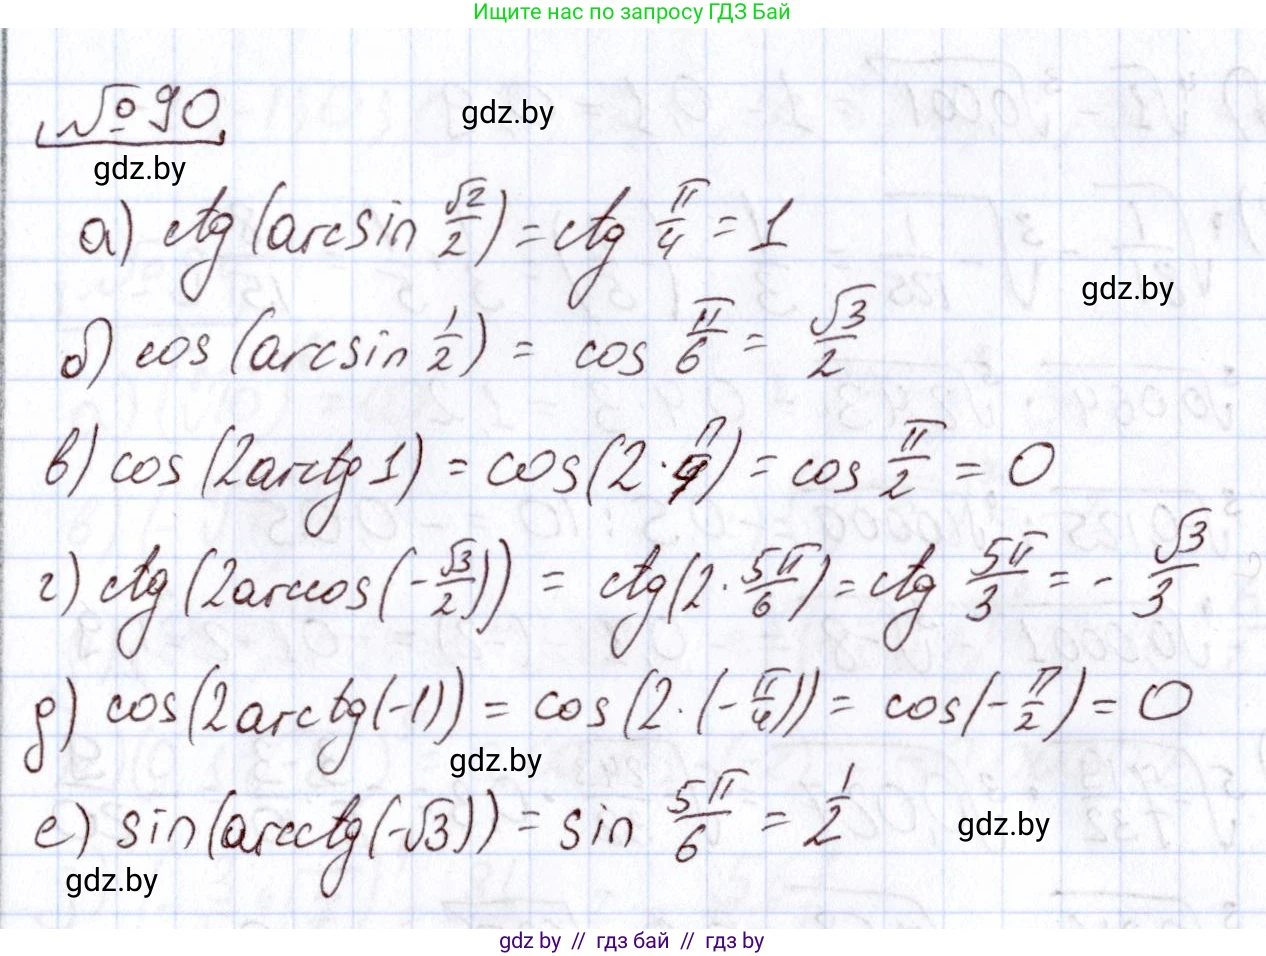 Ищите нас по запросу ГДЗ Бай
№ 90
gdz.by
gdz.by
а) ctg(arcsin √2/2) = ctg π/4 = 1
gdz.by
б) cos(arcsin 1/2) = cos π/6 = √3/2
в) cos(2arctg 1) = cos(2·π/4) = cos π/2 = 0
г) ctg(2arccos(-√3/2)) = ctg(2·5π/6) = ctg 5π/3 = -√3/3
д) cos(2arctg(-1)) = cos(2·(-π/4)) = cos(-π/2) = 0
gdz.by
е) sin(arcctg(-√3)) = sin 5π/6 = 1/2
gdz.by
gdz.by
gdz by // гдз бай // гдз by